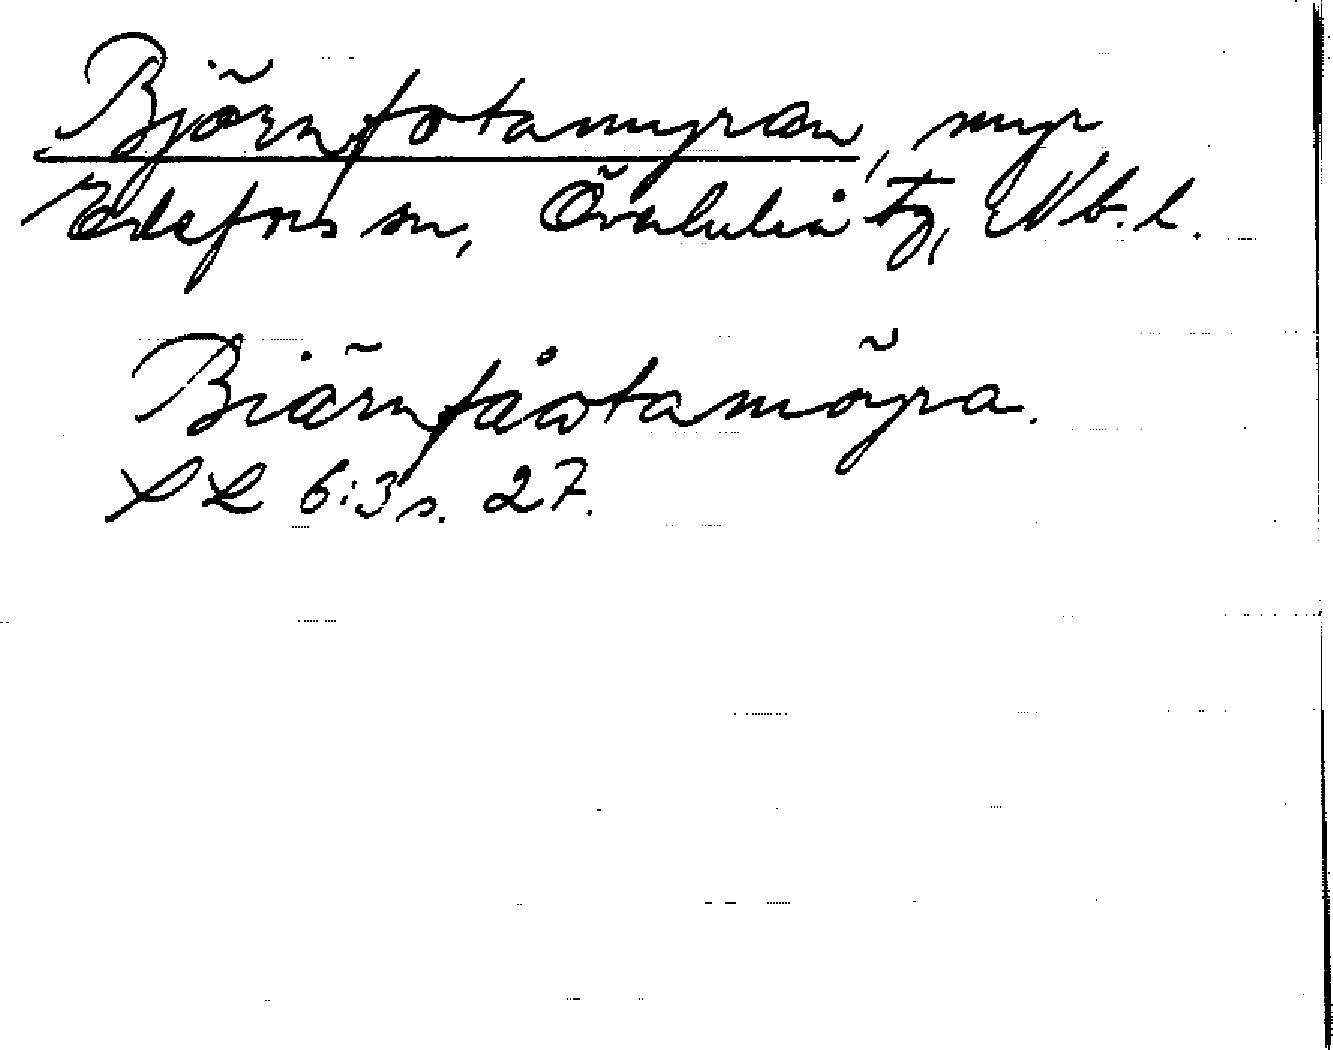 Björnfotamyran, myr
Edefors sn, Överluleå tg, Nb. l.
Biärnfåotamöyra.
SL 6:3 s. 27.